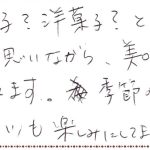 子?洋菓子?と
思いながら、美
ます。季節の
いも楽しみにしてま